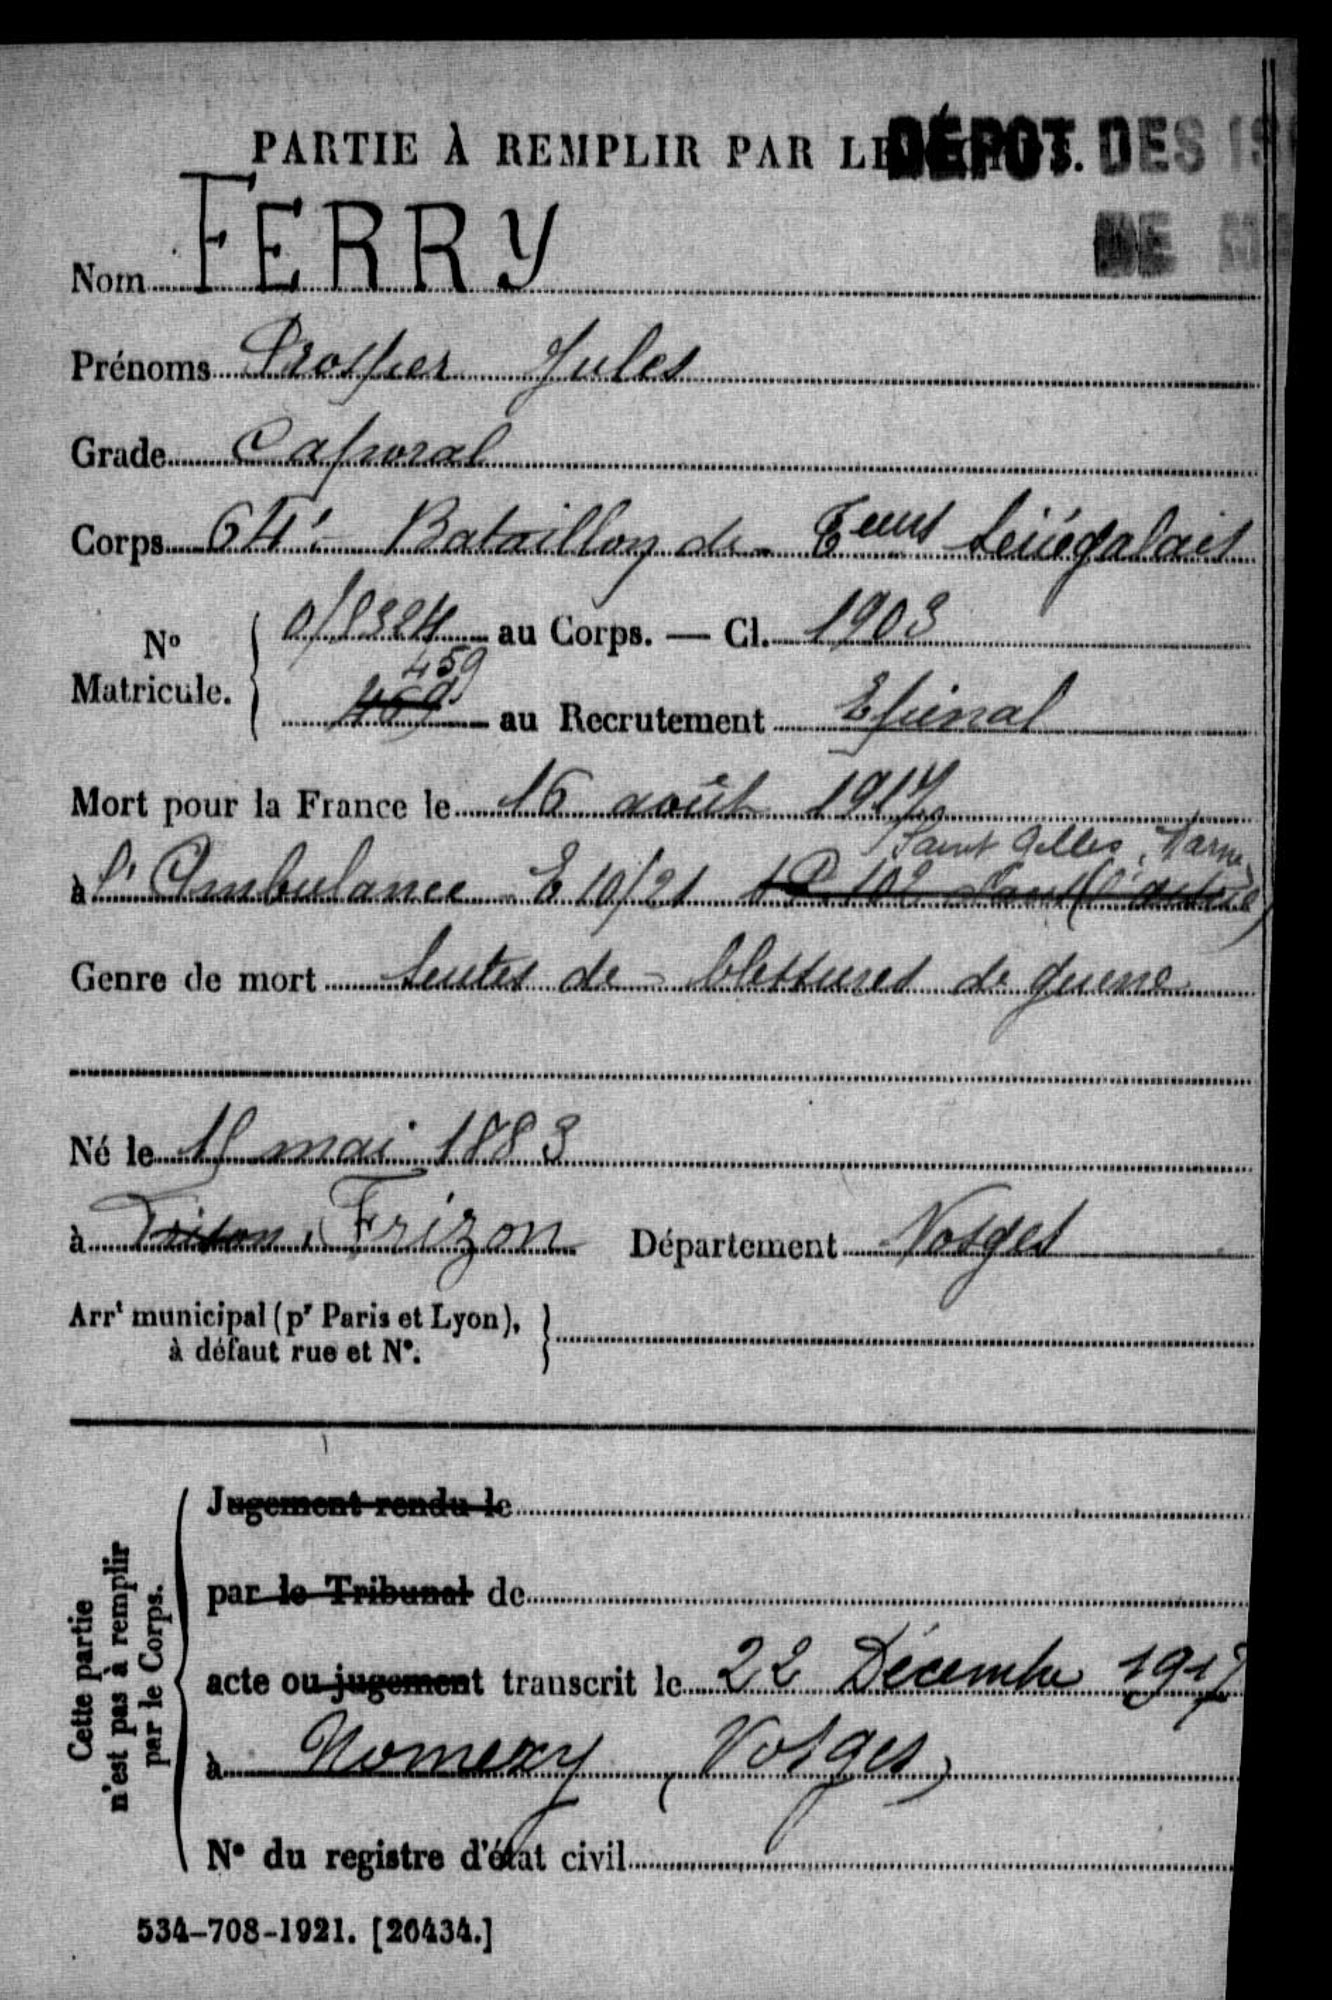 PARTIE À REMPLIR PAR LE
DÉPOT DES
DE
Nom FERRY
Prénoms Prosper Jules
Grade Caporal
Corps 64e Bataillon de Teurs Sénégalais
No Matricule. 0/8324 au Corps. — Cl. 1903
459
469 au Recrutement Epinal
Mort pour la France le 16 août 1917
Saint Gilles, Marne
à l'Ambulance E 10/21
Genre de mort Suites de blessures de guerre
Né le mai 1883
à Frison, Frizon Département Vosges
Arrt municipal (pr Paris et Lyon),
à défaut rue et No.
Cette partie
n'est pas à remplir
par le Corps.
Jugement rendu le
par le Tribunal de
acte ou jugement transcrit le 22 Décembre 1917
à Nomexy (Vosges)
No du registre d'état civil
534-708-1921. [26434.]